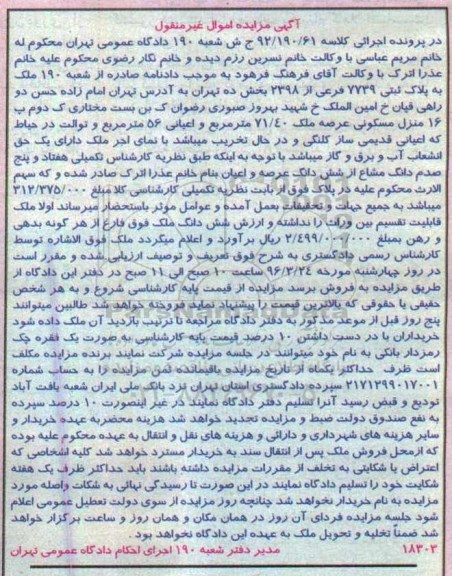 آگهی مزایده اموال غیرمنقول
در پرونده اجرائی کلاسه ۹۲/۱۹۰/۶۱ ج ش شعبه ۱۹۰ دادگاه عمومی تهران محکوم له
خانم مریم عباسی با وکالت خانم نسرین رزم دیده و خانم نگار رضوی محکوم علیه خانم
عذرا اترک با وکالت آقای فرهنگ فرهود به موجب دادنامه صادره از شعبه ۱۹۰ ملک
به پلاک ثبتی ۷۷۳۹ فرعی از ۲۳۹۸ بخش ده تهران به آدرس تهران امام زاده حسن دو
راهی قپان خ امین الملک خ شهید بهروز صبوری رضوان ک بن بست مختاری ک دوم پ
۱۶ منزل مسکونی عرصه ملک ۷۱/۴۰ مترمربع و اعیانی ۵۶ مترمربع و توالت در حیاط
که اعیانی قدیمی ساز کلنگی و در حال تخریب میباشد با نمای اجر ملک دارای یک حق
انشعاب آب و برق و گاز میباشد با توجه به اینکه طبق نظریه کارشناس تکمیلی هفتاد و پنج
صدم دانگ مشاع از شش دانگ عرصه و اعیان بنام خانم عذرا اترک صادر شده و که سهم
الارث محکوم علیه در پلاک فوق از بابت نظریه تکمیلی کارشناسی کلا مبلغ ۳۱۲/۳۷۵/۰۰۰
میباشد به جمیع جهات و تحقیقات بعمل آمده و عوامل موثر باستحضار میرساند اولا ملک
قابلیت تقسیم بین وراث را نداشته و ارزش شش دانگ ملک فوق فارغ از هر گونه بدهی
و رهن بمبلغ ۲/۴۹۹/۰۰۰/۰۰۰ ریال برآورد و اعلام میگردد ملک فوق الاشاره توسط
کارشناس رسمی دادگستری به شرح فوق تعریف و توصیف ارزیابی شده و مقرر است
در روز چهارشنبه مورخه ۹۶/۳/۲۴ ساعت ۱۰ صبح الی ۱۱ صبح در دفتر این دادگاه از
طریق مزایده به فروش برسد مزایده از قیمت پایه کارشناسی شروع و به هر شخص
حقیقی یا حقوقی که بالاترین قیمت را پیشنهاد نماید فروخته خواهد شد طالبین میتوانند
پنج روز قبل از موعد مذکور به دفتر دادگاه مراجعه تا ترتیب بازدید آن ملک داده شود
خریداران با در دست داشتن ۱۰ درصد قیمت پایه کارشناسی به صورت یک فقره چک
رمزدار بانکی به نام خود میتوانند در جلسه مزایده شرکت نمایند برنده مزایده مکلف
است ظرف حداکثر یکماه از تاریخ مزایده باقیمانده ثمن مزایده را به حساب شماره
۲۱۷۱۲۹۹۰۱۷۰۰۱ سپرده دادگستری استان تهران نزد بانک ملی ایران شعبه یافت آباد
تودیع و قبض رسید آنرا تسلیم دفتر دادگاه نمایند در غیر اینصورت ۱۰ درصد سپرده
به نفع صندوق دولت ضبط و مزایده تجدید خواهد شد هزینه محضربه عهده خریدار و
سایر هزینه های شهرداری و دارائی و هزینه های نقل و انتقال به عهده محکوم علیه بوده
که ازمحل فروش ملک پس از انتقال سند به خریدار مسترد خواهد شد کلیه اشخاصی که
اعتراض یا شکایتی به تخلف از مقررات مزایده داشته باشند باید حداکثر ظرف یک هفته
شکایت خود را تسلیم دادگاه نمایند در این صورت تا رسیدگی نهائی به شکات واصله مورد
مزایده به نام خریدار نخواهد شد چنانچه روز مزایده از سوی دولت تعطیل عمومی اعلام
شود جلسه مزایده فردای آن روز در همان مکان و همان روز و ساعت برگزار خواهد
شد ضمناً تخلیه و تحویل ملک به عهده این دادگاه نخواهد بود .
۱۸۳۰۳ مدیر دفتر شعبه ۱۹۰ اجرای احکام دادگاه عمومی تهران